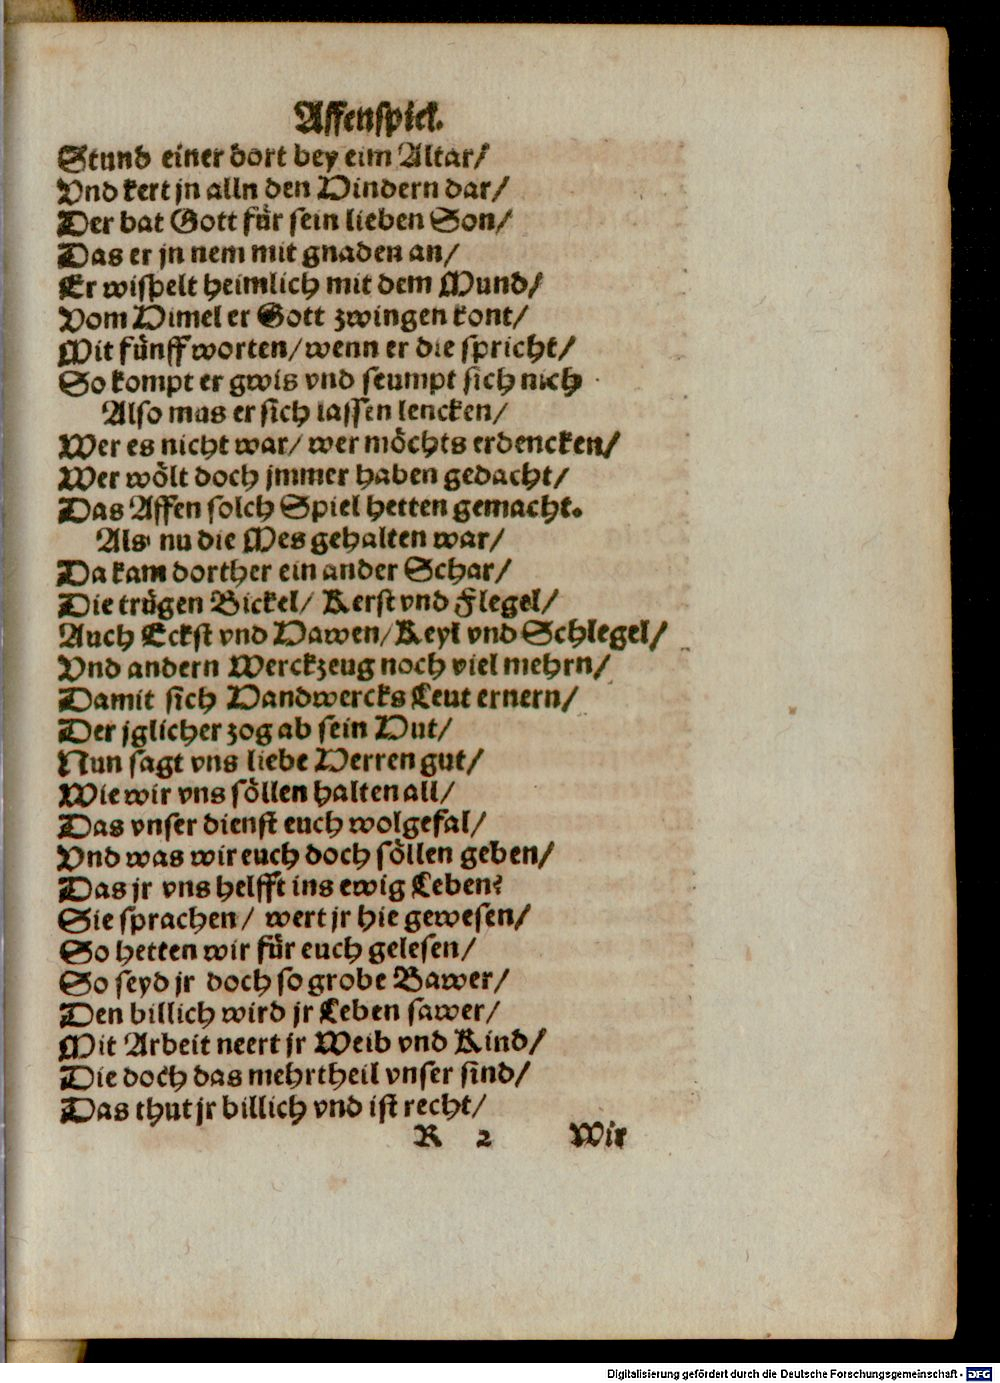 Affenspiel.
Stund einer dort bey eim Altar/
Vnd kert jn alln den Hindern dar/
Der bat Gott für sein lieben Son/
Das er jn nem mit gnaden an/
Er wispelt heimlich mit dem Mund/
Vom Himel er Gott zwingen kont/
Mit fünff worten/ wenn er die spricht/
So kompt er gwis vnd seumpt sich nich
Also mus er sich lassen lencken/
Wer es nicht war/ wer möchts erdencken/
Wer wölt doch jmmer haben gedacht/
Das Affen solch Spiel hetten gemacht.
Als nu die Mes gehalten war/
Da kam dorther ein ander Schar/
Die trügen Bickel/ Kerst vnd Flegel/
Auch Eckst vnd Hawen/ Keyl vnd Schlegel/
Vnd andern Werckzeug noch viel mehrn/
Damit sich Handwercks Leut ernern/
Der jglicher zog ab sein Hut/
Nun sagt vns liebe Herren gut/
Wie wir vns söllen halten all/
Das vnser dienst euch wolgefal/
Vnd was wir euch doch söllen geben/
Das jr vns helfft ins ewig Leben?
Sie sprachen/ wert jr hie gewesen/
So hetten wir für euch gelesen/
So seyd jr doch so grobe Bawer/
Den billich wird jr Leben sawer/
Mit Arbeit neert jr Weib vnd Kind/
Die doch das mehrtheil vnser sind/
Das thut jr billich vnd ist recht/
R 2 Wir
Digitalisierung gefördert durch die Deutsche Forschungsgemeinschaft - DFG